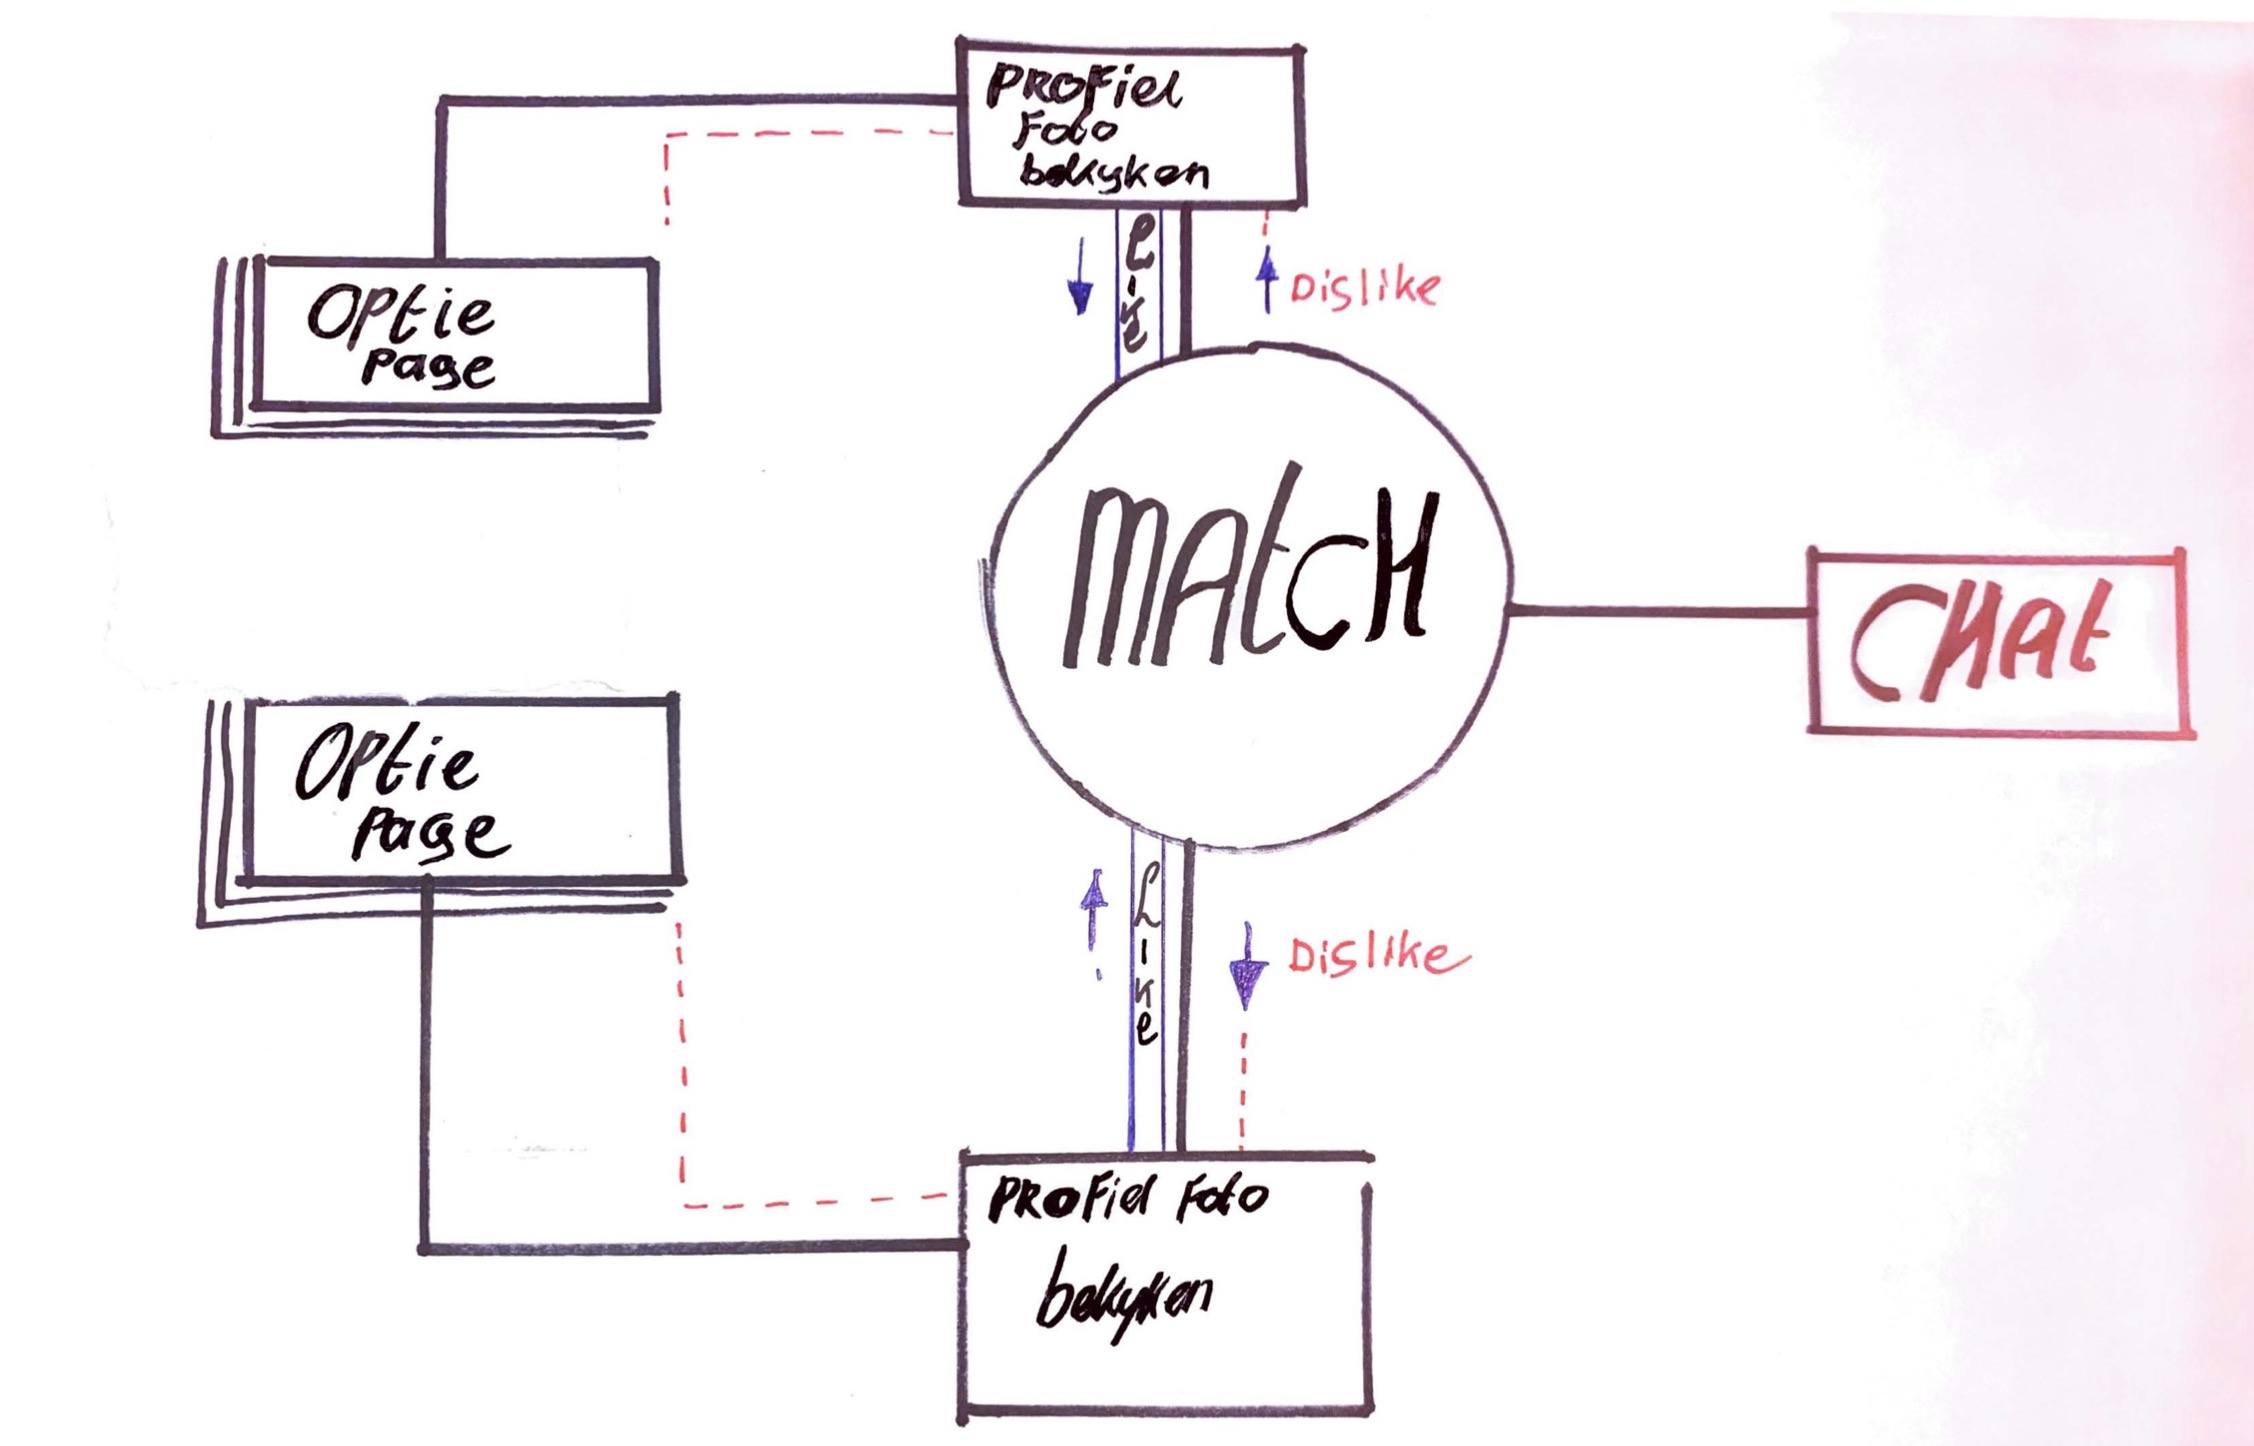 PROFiel
Foto
bekyken
Like
Dislike
OPtie
Page
MAtCH
CHAt
OPtie
Page
Like
Dislike
PROFiel Foto
bekyken